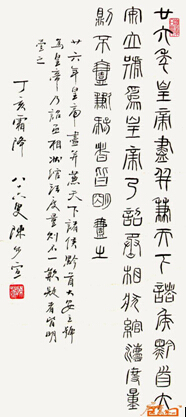 廿六年皇帝盡并兼天下諸侯黔首大
安立號為皇帝乃詔丞相狀綰灋度量
則不壹歉疑者皆明壹之
廿六年皇帝盡并兼天下諸侯黔首大安立號
為皇帝乃詔丞相狀綰法度量則不一歉疑者皆明
壹之
丁亥霜降 叟陳